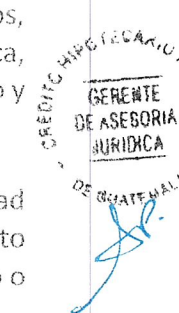 os,
ca,
o y
CREDITO HIPOTECARIO
GERENTE
DE ASESORIA
JURIDICA
DE GUATEMALA
ad
to
o o